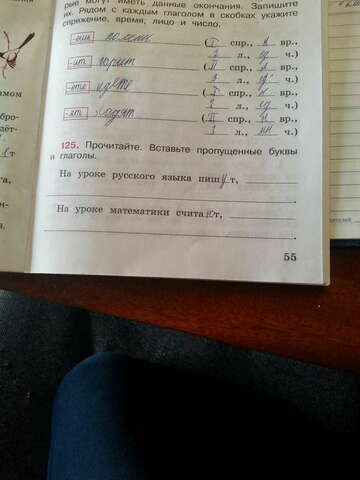 рые могут иметь данные окончания. Запишите
их. Рядом с каждым глаголом в скобках укажите
спряжение, время, лицо и число.
(I спр., вр.,
л., ч.)
-ит горит (II спр., вр.,
3 л., ед ч.)
-ете идёте (I спр., вр.,
2 л., ч.)
-ят ходят (II спр., вр.,
3 л., мн ч.)
125. Прочитайте. Вставьте пропущенные буквы
и глаголы.
На уроке русского языка пишут,
На уроке математики считают,
55